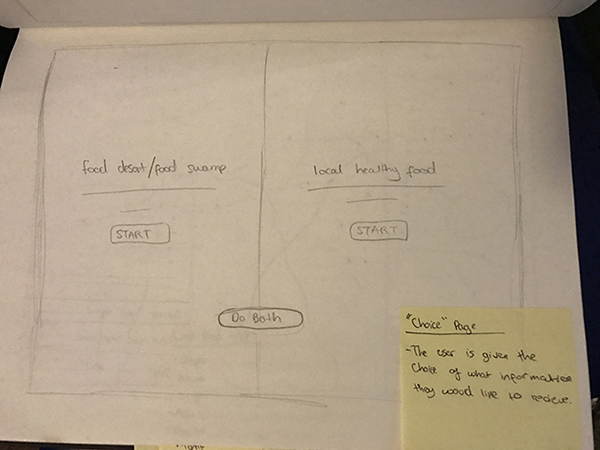 food desert/food swamp
local healthy food
START
START
Do Both
"Choice" Page
-The user is given the
choice of what information
they would like to recieve.